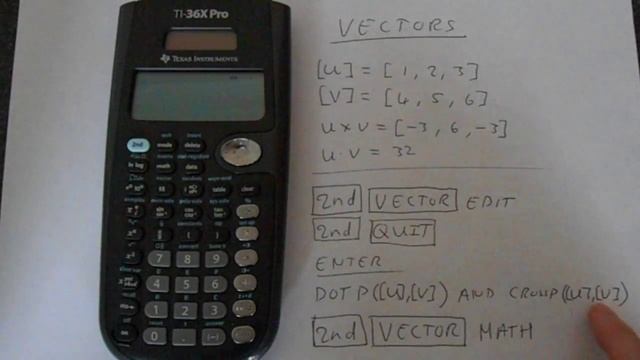 TI-36X Pro
TEXAS INSTRUMENTS
2nd
mode
delete
ln log
math
data
table
clear
7 8 9
4 5 6
1 2 3
0 . (-)
VECTORS
[u] = [1, 2, 3]
[V] = [4, 5, 6]
u×v = [-3, 6, -3]
u·v = 32
2nd VECTOR EDIT
2nd QUIT
ENTER
DOT P([U],[V]) AND CROSSP([U],[V])
2nd VECTOR MATH